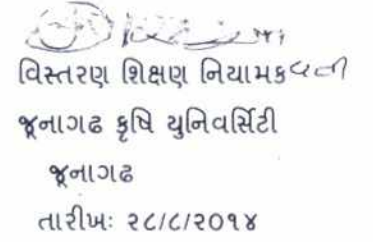 વિસ્તરણ શિક્ષણ નિયામક વતી
જૂનાગઢ કૃષિ યુનિવર્સિટી
જૂનાગઢ
તારીખઃ ૨૮/૮/૨૦૧૪